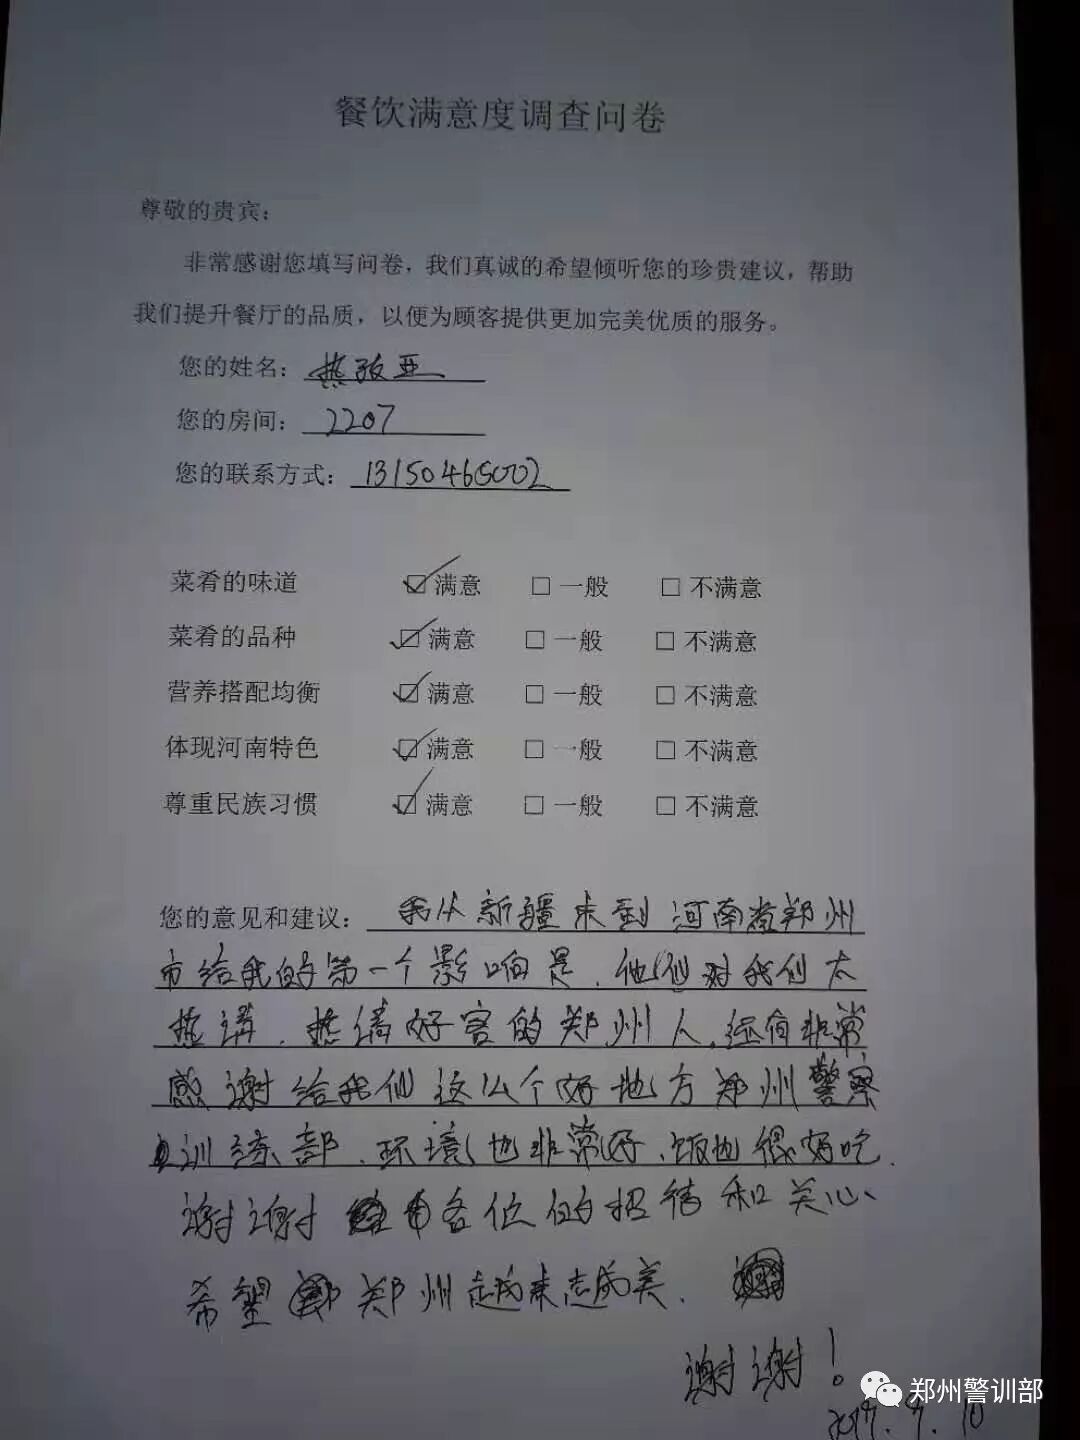 餐饮满意度调查问卷
尊敬的贵宾：
非常感谢您填写问卷，我们真诚的希望倾听您的珍贵建议，帮助
我们提升餐厅的品质，以便为顾客提供更加完美优质的服务。
您的姓名：热孜亚
您的房间：2207
您的联系方式：13150465002
菜肴的味道 ☑满意 □一般 □不满意
菜肴的品种 ☑满意 □一般 □不满意
营养搭配均衡 ☑满意 □一般 □不满意
体现河南特色 ☑满意 □一般 □不满意
尊重民族习惯 ☑满意 □一般 □不满意
您的意见和建议：我从新疆来到河南省郑州
市给我的第一个影响是、他们对我们太
热请、热请好客的郑州人,还有非常
感谢给我们这么个好地方郑州警察
训练部、环境也非常好、饭也很好吃.
谢谢各位的招待和关心、
希望郑州越来越美.
谢谢！
郑州警训部